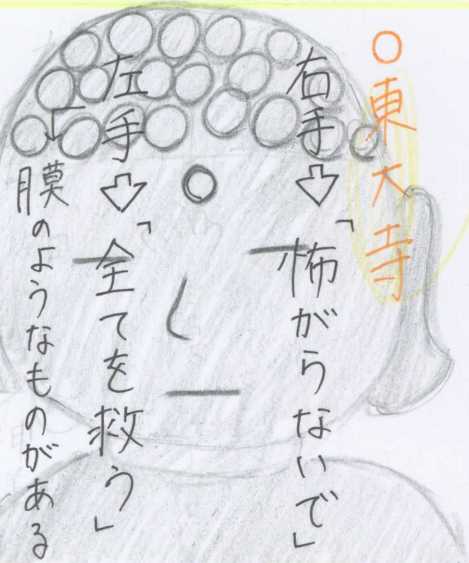 ○東大寺
右手⇩「怖がらないで」
左手⇩「全てを救う」
↓膜のようなものがある